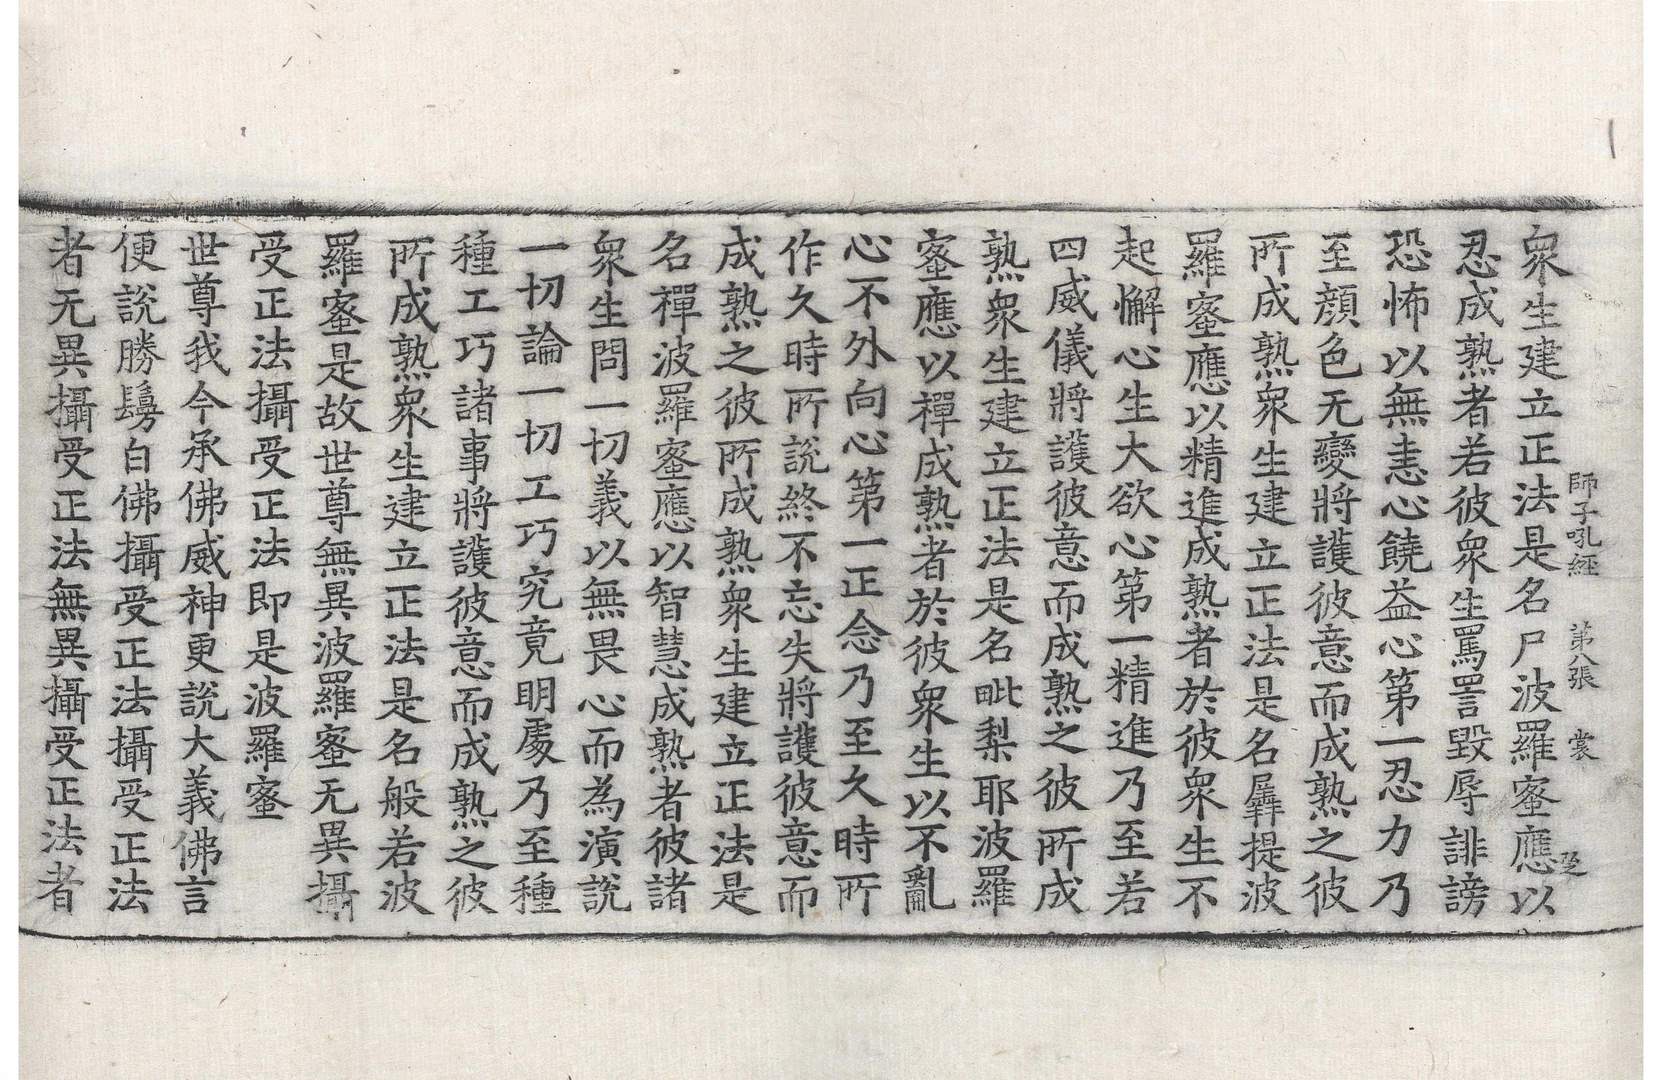 師子吼経 第八張 裳
衆生建立正法是名尸波羅蜜應以
忍成熟者若彼衆生罵詈毀辱誹謗
恐怖以無恚心饒益心第一忍力乃
至顔色无變將護彼意而成熟之彼
所成熟衆生建立正法是名羼提波
羅蜜應以精進成熟者於彼衆生不
起懈心生大欲心第一精進乃至若
四威儀將護彼意而成熟之彼所成
熟衆生建立正法是名毗梨耶波羅
蜜應以禪成熟者於彼衆生以不亂
心不外向心第一正念乃至久時所
作久時所說終不忘失將護彼意而
成熟之彼所成熟衆生建立正法是
名禪波羅蜜應以智慧成熟者彼諸
衆生問一切義以無畏心而為演說
一切論一切工巧究竟明處乃至種
種工巧諸事將護彼意而成熟之彼
所成熟衆生建立正法是名般若波
羅蜜是故世尊無異波羅蜜无異攝
受正法攝受正法即是波羅蜜
世尊我今承佛威神更說大義佛言
便說勝鬘白佛攝受正法攝受正法
者无異攝受正法無異攝受正法者